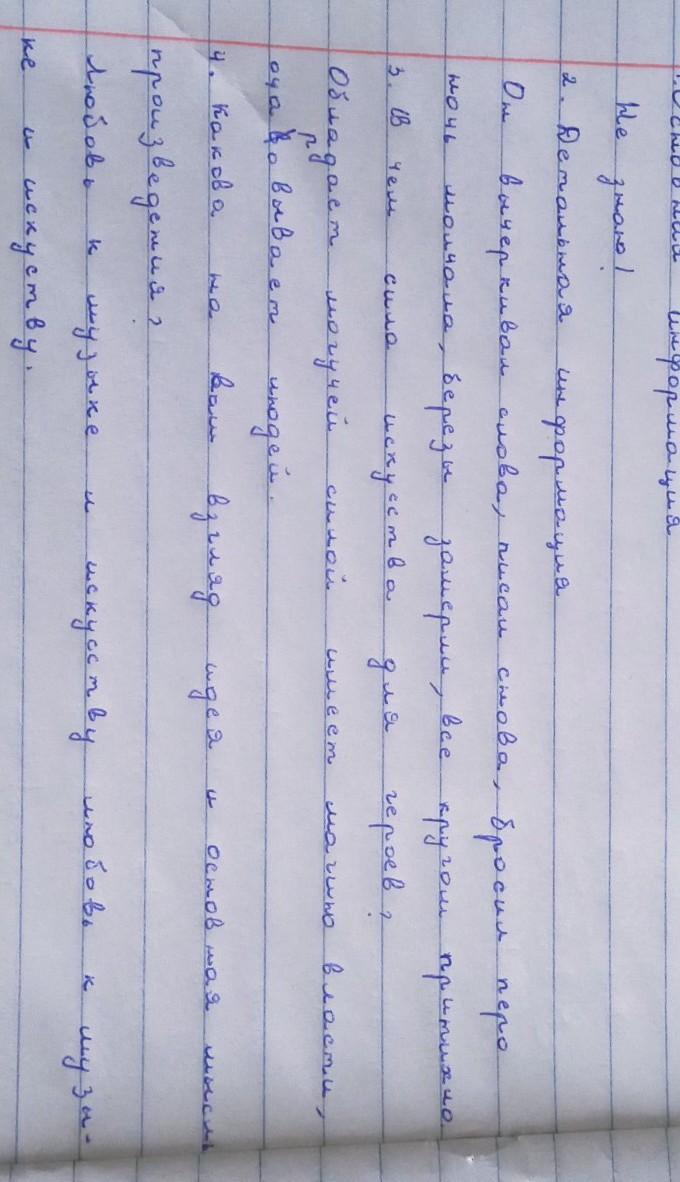 информация
Не знаю!
2. Детальная информация
Он вычеркивал слова, писал снова, бросил перо
ночь молчала, березы замерли, все кругом притихло.
3. В чем сила искусства для героев?
Обладает могучей силой имеет магию власти,
очаровывает людей.
4. Какова на ваш взгляд идея и основная мысль
произведения?
Любовь к музыке и искусству любовь к музы-
ке и искуству.